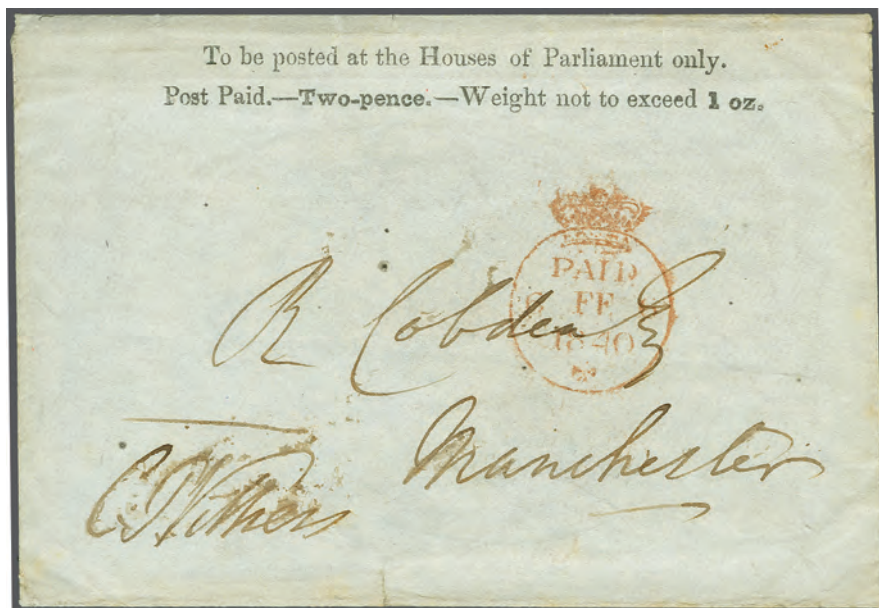 To be posted at the Houses of Parliament only.
Post Paid.—Two-pence.—Weight not to exceed 1 oz.
PAID
FE
1840
R Cobden Esq
Manchester